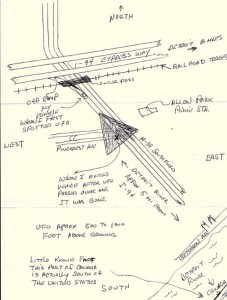 NORTH
DETROIT 8 MILES
I-94 EXPRESS WAY
RAILROAD TRACKS
OVER PASS
OFF RAMP
MY
VEHICLE
WHEN I FIRST
SPOTTED UFO
ALLEN PARK
POLICE STA.
WEST
EAST
WHEN I EXITED
VEHICLE AFTER UFO
PASSED OVER ME
IT WAS GONE
DETROIT RIVER
APPROX
MI FROM
I-94
UFO APROX 500 TO 1000
FOOT ABOVE GROUND
LITTLE KNOWN FACT
THIS PART OF CANADA
IS ACTUALLY SOUTH OF
THE UNITED STATES
SOUTH
DETROIT
RIVER